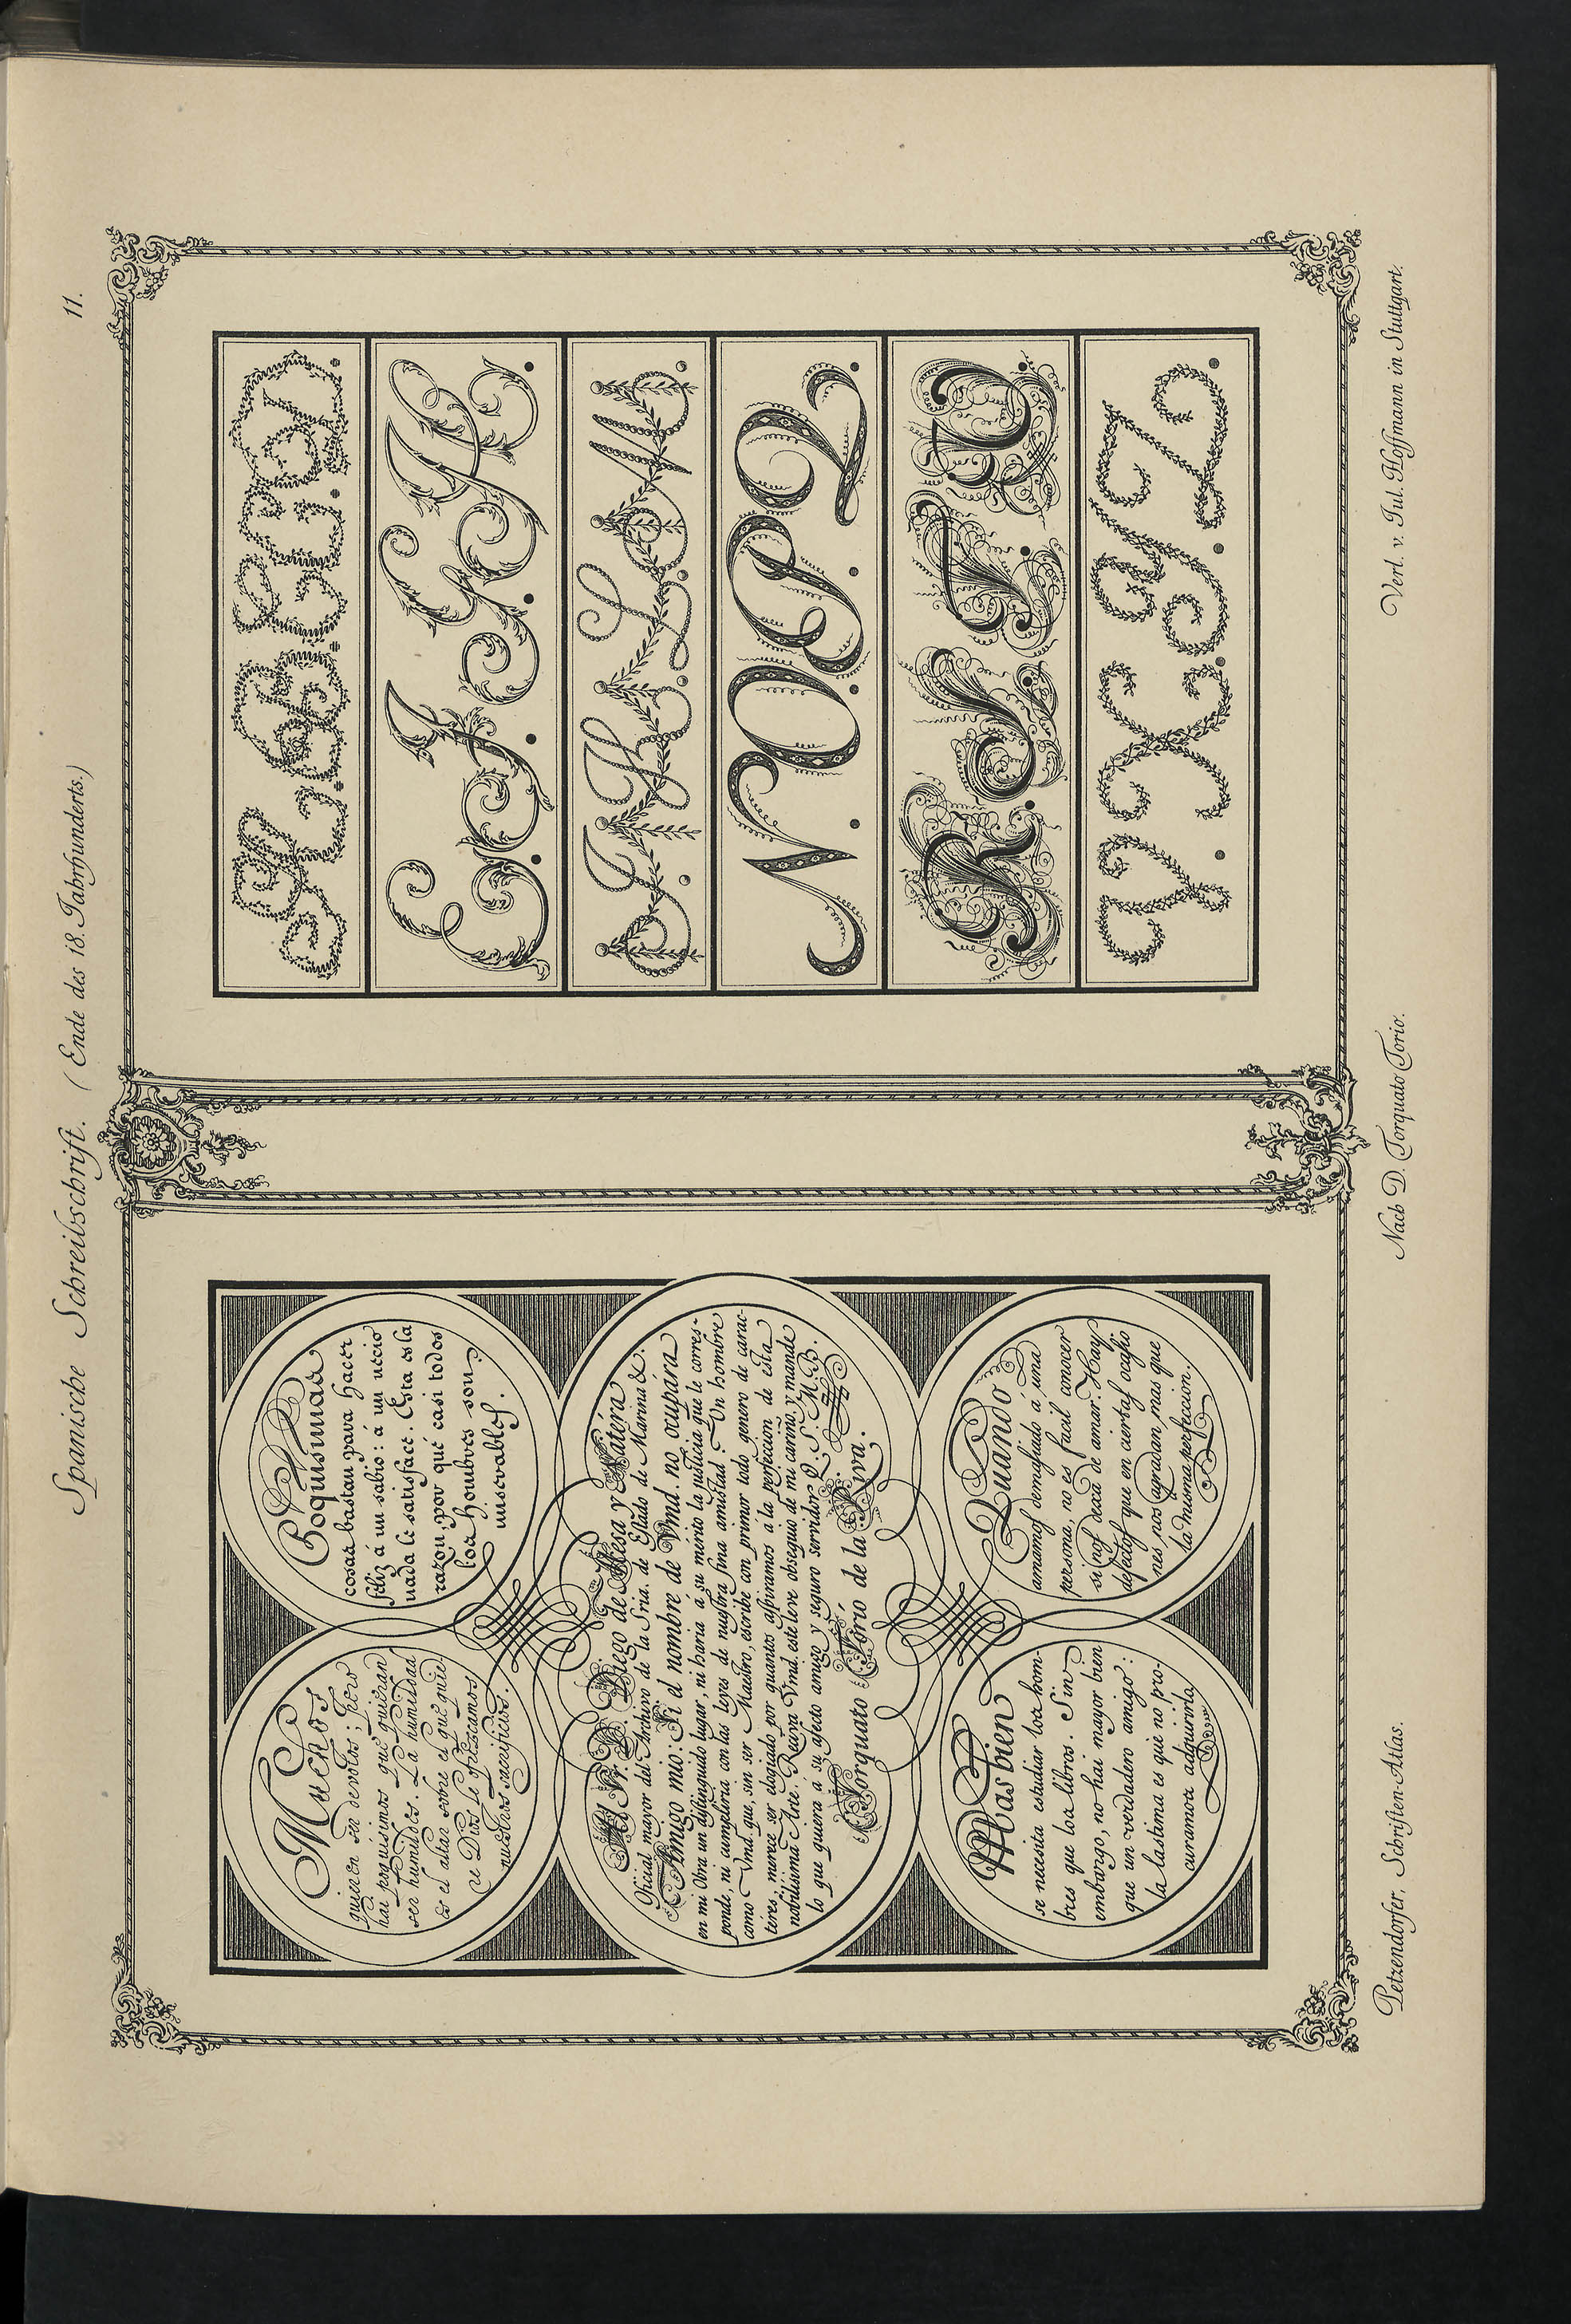 Spanische Schreibschrift. (Ende des 18. Jahrhunderts.)
11.
Muchos
quieren ser devotos; pero
hai poquisimos que quieran
ser humildes. La humildad
es el altar sobre el que quie-
re Dios le ofrezcamos
nuestros sacrificios.
Poquisimas
cosas bastan para hacer
feliz á un sabio: á un necio
nada le satisface. Esta es la
razon por qué casi todos
los hombres son
miserables.
Al Sr. D. Diego de Mesa y Matéra
Oficial mayor del Archivo de la Sria. de Estado de Marina &.
Amigo mio: Si el nombre de Vmd. no ocupára
en mi Obra un distinguido lugar, ni haria á su merito la justicia que le corres-
ponde, ni cumpliria con las leyes de nuestra fina amistad. Un hombre
como Vmd. que, sin ser Maestro, escribe con primor todo genero de carac-
teres, merece ser elogiado por quantos aspiramos á la perfeccion de esta
nobilisima Arte. Reciva Vmd. este leve obsequio de mi cariño, y mande
lo que quiera á su afecto amigo y seguro servidor Q. S. M. B.
Torquato Torio de la Riva.
Mas bien
se necesita estudiar los hom-
bres que los libros. Sin
embargo, no hai mayor bien
que un verdadero amigo:
la lastima es que no pro-
curamos adquirirla.
Quando
amamos demasiado á una
persona, no es facil conocer
si nos dexa de amar. Hay
defectos que en ciertas ocasio
nes nos agradan mas que
la misma perfeccion.
A. B. C. D. E. F.
G. H.
I. K. L. M.
N. O. P. Q.
R. S. T. U.
V. X. Y. Z.
Petzendorfer, Schriften-Atlas.
Nach D. Torquato Torio.
Verl. v. Jul. Hoffmann in Stuttgart.